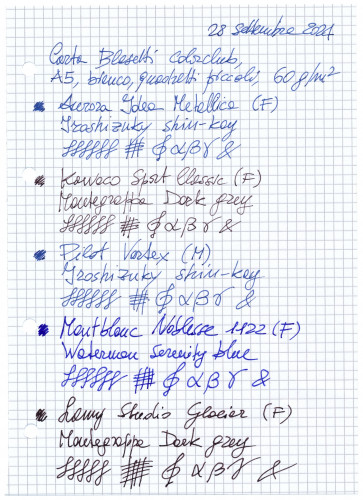 28 settembre 2021
Carta Blasetti colorclub,
A5, bianco, quadretti piccoli, 60 g/m²
Aurora Idea Metallica (F)
Iroshizuky shin-kay
ſſſſſſ # ∮ α β γ &
Kaweco Sport Classic (F)
Montegrappa Dark grey
ſſſſſſ # ∮ α β γ &
Pilot Vortex (M)
Iroshizuky shin-kay
ſſſſſſ # ∮ α β γ &
Montblanc Noblesse 1122 (F)
Waterman Serenity blue
ſſſſſſ # ∮ α β γ &
Lamy Studio Glacier (F)
Montegrappa Dark grey
ſſſſſſ # ∮ α β γ &